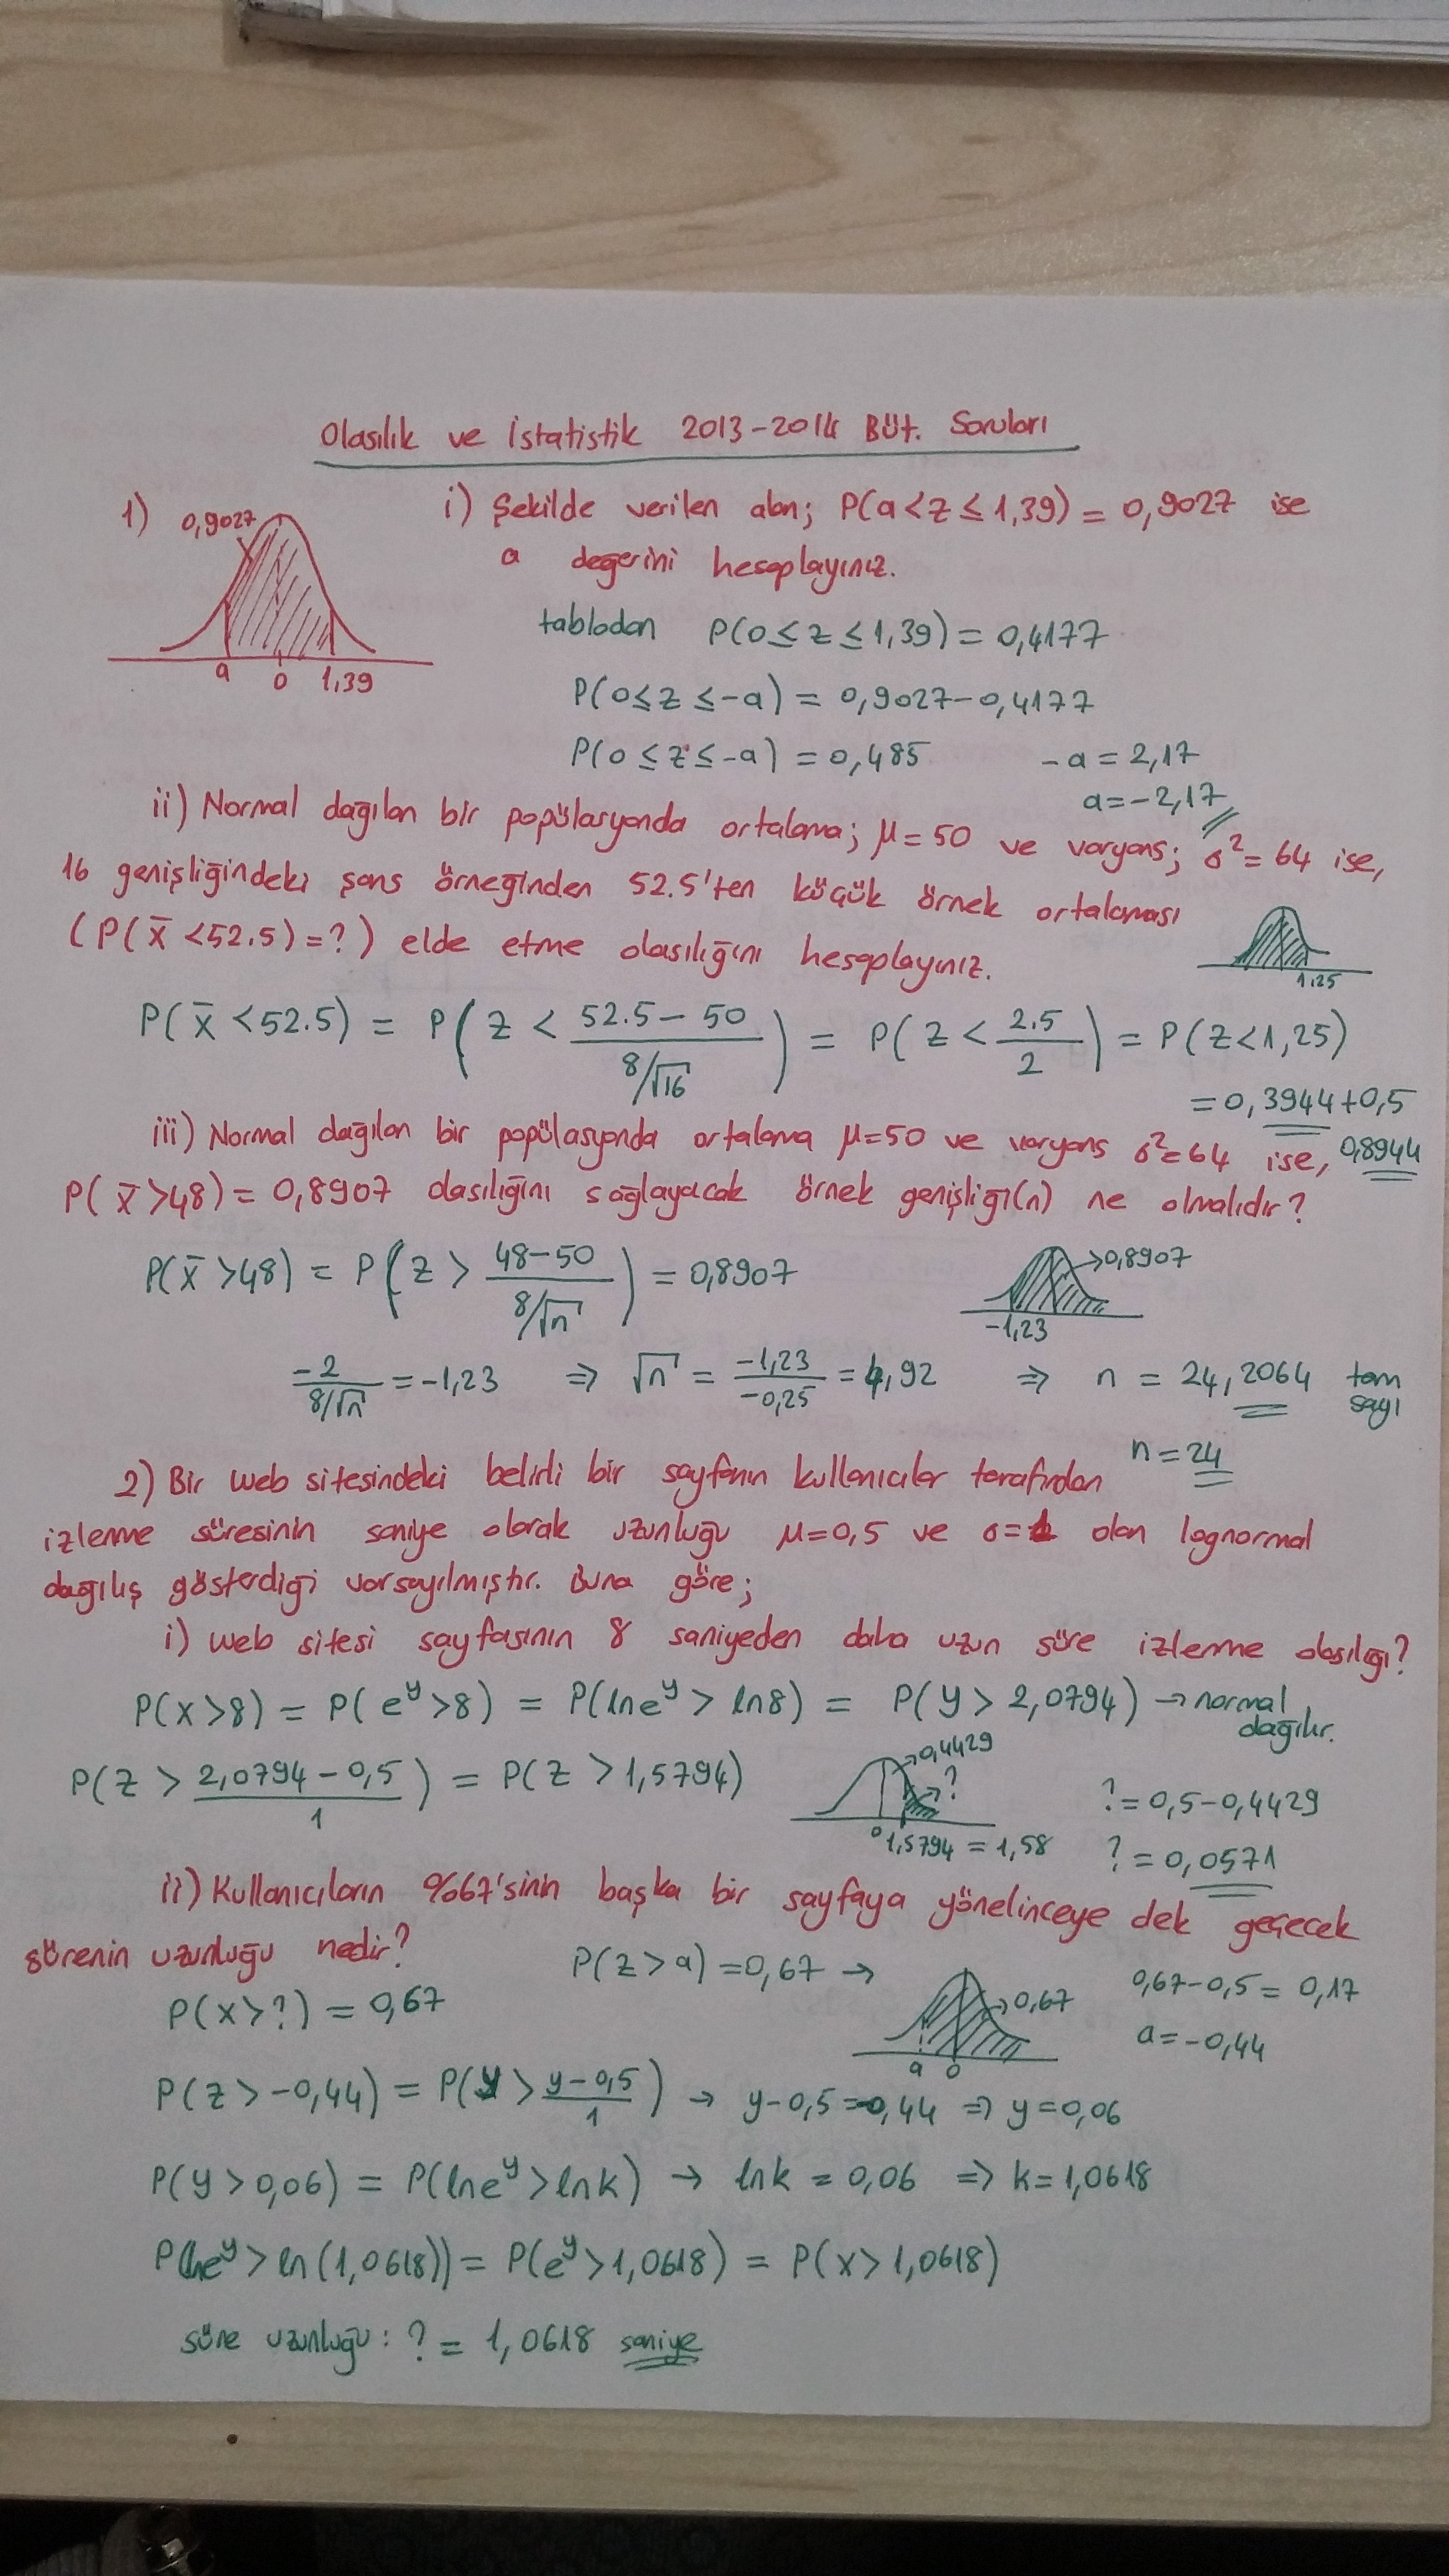 Olasılık ve İstatistik 2013-2014 Büt. Soruları
1) 0,9027 i) Şekilde verilen alan; P(a<z≤1,39) = 0,9027 ise
a değerini hesaplayınız.
tablodan P(0≤z≤1,39) = 0,4177
a 0 1,39
P(0≤z≤-a) = 0,9027-0,4177
P(0≤z≤-a) = 0,485 -a = 2,17
a=-2,17
ii) Normal dağılan bir popülasyonda ortalama; μ=50 ve varyans; σ²=64 ise,
16 genişliğindeki şans örneğinden 52.5'ten küçük örnek ortalaması
(P(x̄<52.5)=?) elde etme olasılığını hesaplayınız.
1.25
P(x̄<52.5) = P(z < (52.5-50)/(8/√16)) = P(z < 2.5/2) = P(z<1,25)
=0,3944+0,5
iii) Normal dağılan bir popülasyonda ortalama μ=50 ve varyans σ²=64 ise, 0,8944
P(x̄>48) = 0,8907 olasılığını sağlayacak örnek genişliği(n) ne olmalıdır?
P(x̄>48) = P(z > (48-50)/(8/√n)) = 0,8907 →0,8907
-1,23
-2/(8/√n) = -1,23 ⇒ √n = -1,23/-0,25 = 4,92 ⇒ n = 24,2064 tam
sayı
n=24
2) Bir web sitesindeki belirli bir sayfanın kullanıcılar tarafından
izlenme süresinin saniye olarak uzunluğu μ=0,5 ve σ=1 olan lognormal
dağılış gösterdiği varsayılmıştır. Buna göre;
i) web sitesi sayfasının 8 saniyeden daha uzun süre izlenme olasılığı?
P(x>8) = P(e^y>8) = P(lne^y > ln8) = P(y > 2,0794) → normal
dağılır.
P(z > (2,0794-0,5)/1) = P(z > 1,5794) →0,4429
→? ?=0,5-0,4429
0 1,5794 = 1,58 ?=0,0571
ii) Kullanıcıların %67'sinin başka bir sayfaya yönelinceye dek geçecek
sürenin uzunluğu nedir? P(z>a)=0,67 → →0,67 0,67-0,5 = 0,17
P(x>?) = 0,67 a=-0,44
a 0
P(z>-0,44) = P(y > (y-0,5)/1) → y-0,5=-0,44 ⇒ y=0,06
P(y>0,06) = P(lne^y>lnk) → lnk = 0,06 ⇒ k=1,0618
P(lne^y > ln(1,0618)) = P(e^y>1,0618) = P(x>1,0618)
süre uzunluğu: ? = 1,0618 saniye